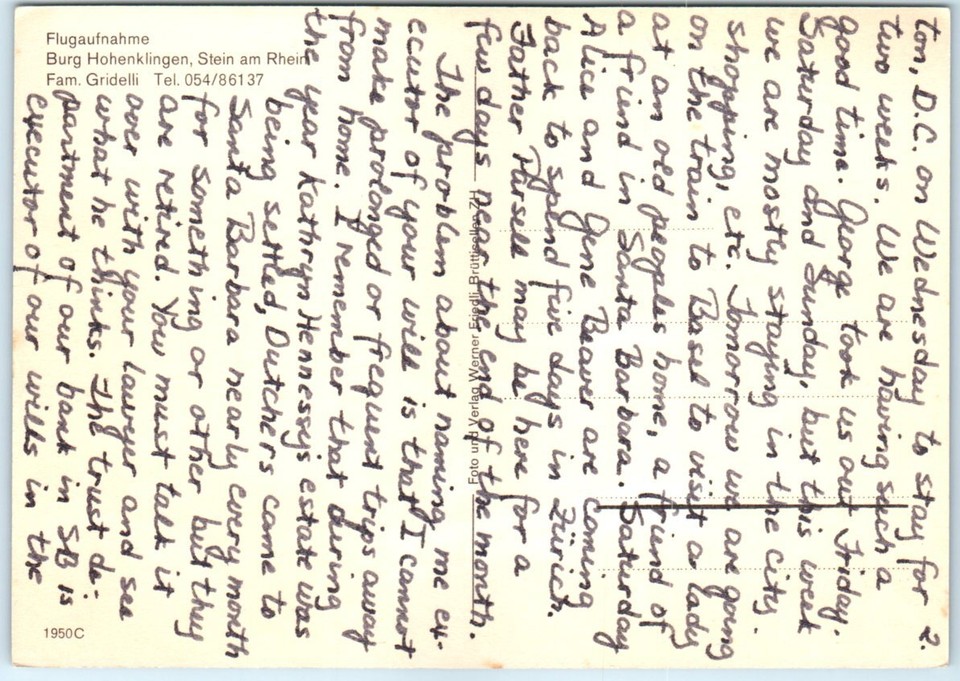 Flugaufnahme
Burg Hohenklingen, Stein am Rhein
Fam. Gridelli Tel. 054/86137
2.
ton, D.C. on Wednesday to stay for
two weeks. We are having such a
good time. George took us out Friday,
Saturday and Sunday, but this week
we are mostly staying in the city.
shopping, etc. Tomorrow we are going
on the train to Basel to visit a lady
at an old peoples home, a friend of
a friend in Santa Barbara. Saturday
Alice and Gene Beaver are coming
back to spend five days in Zürich.
Father Pursell may be here for a
few days near the end of the month.
The problem about naming me ex-
ecutor of your will is that I cannot
make prolonged or frequent trips away
from home. I remember that during
the year Kathryn Hennessy's estate was
being settled, Dutchers came to
Santa Barbara nearly every month
for something or other but they
are retired. You must talk it
over with your lawyer and see
what he thinks. The trust de-
partment of our bank in SB is
executor of our wills in the
Foto und Verlag Werner Friedli, Brüttisellen ZH
1950C